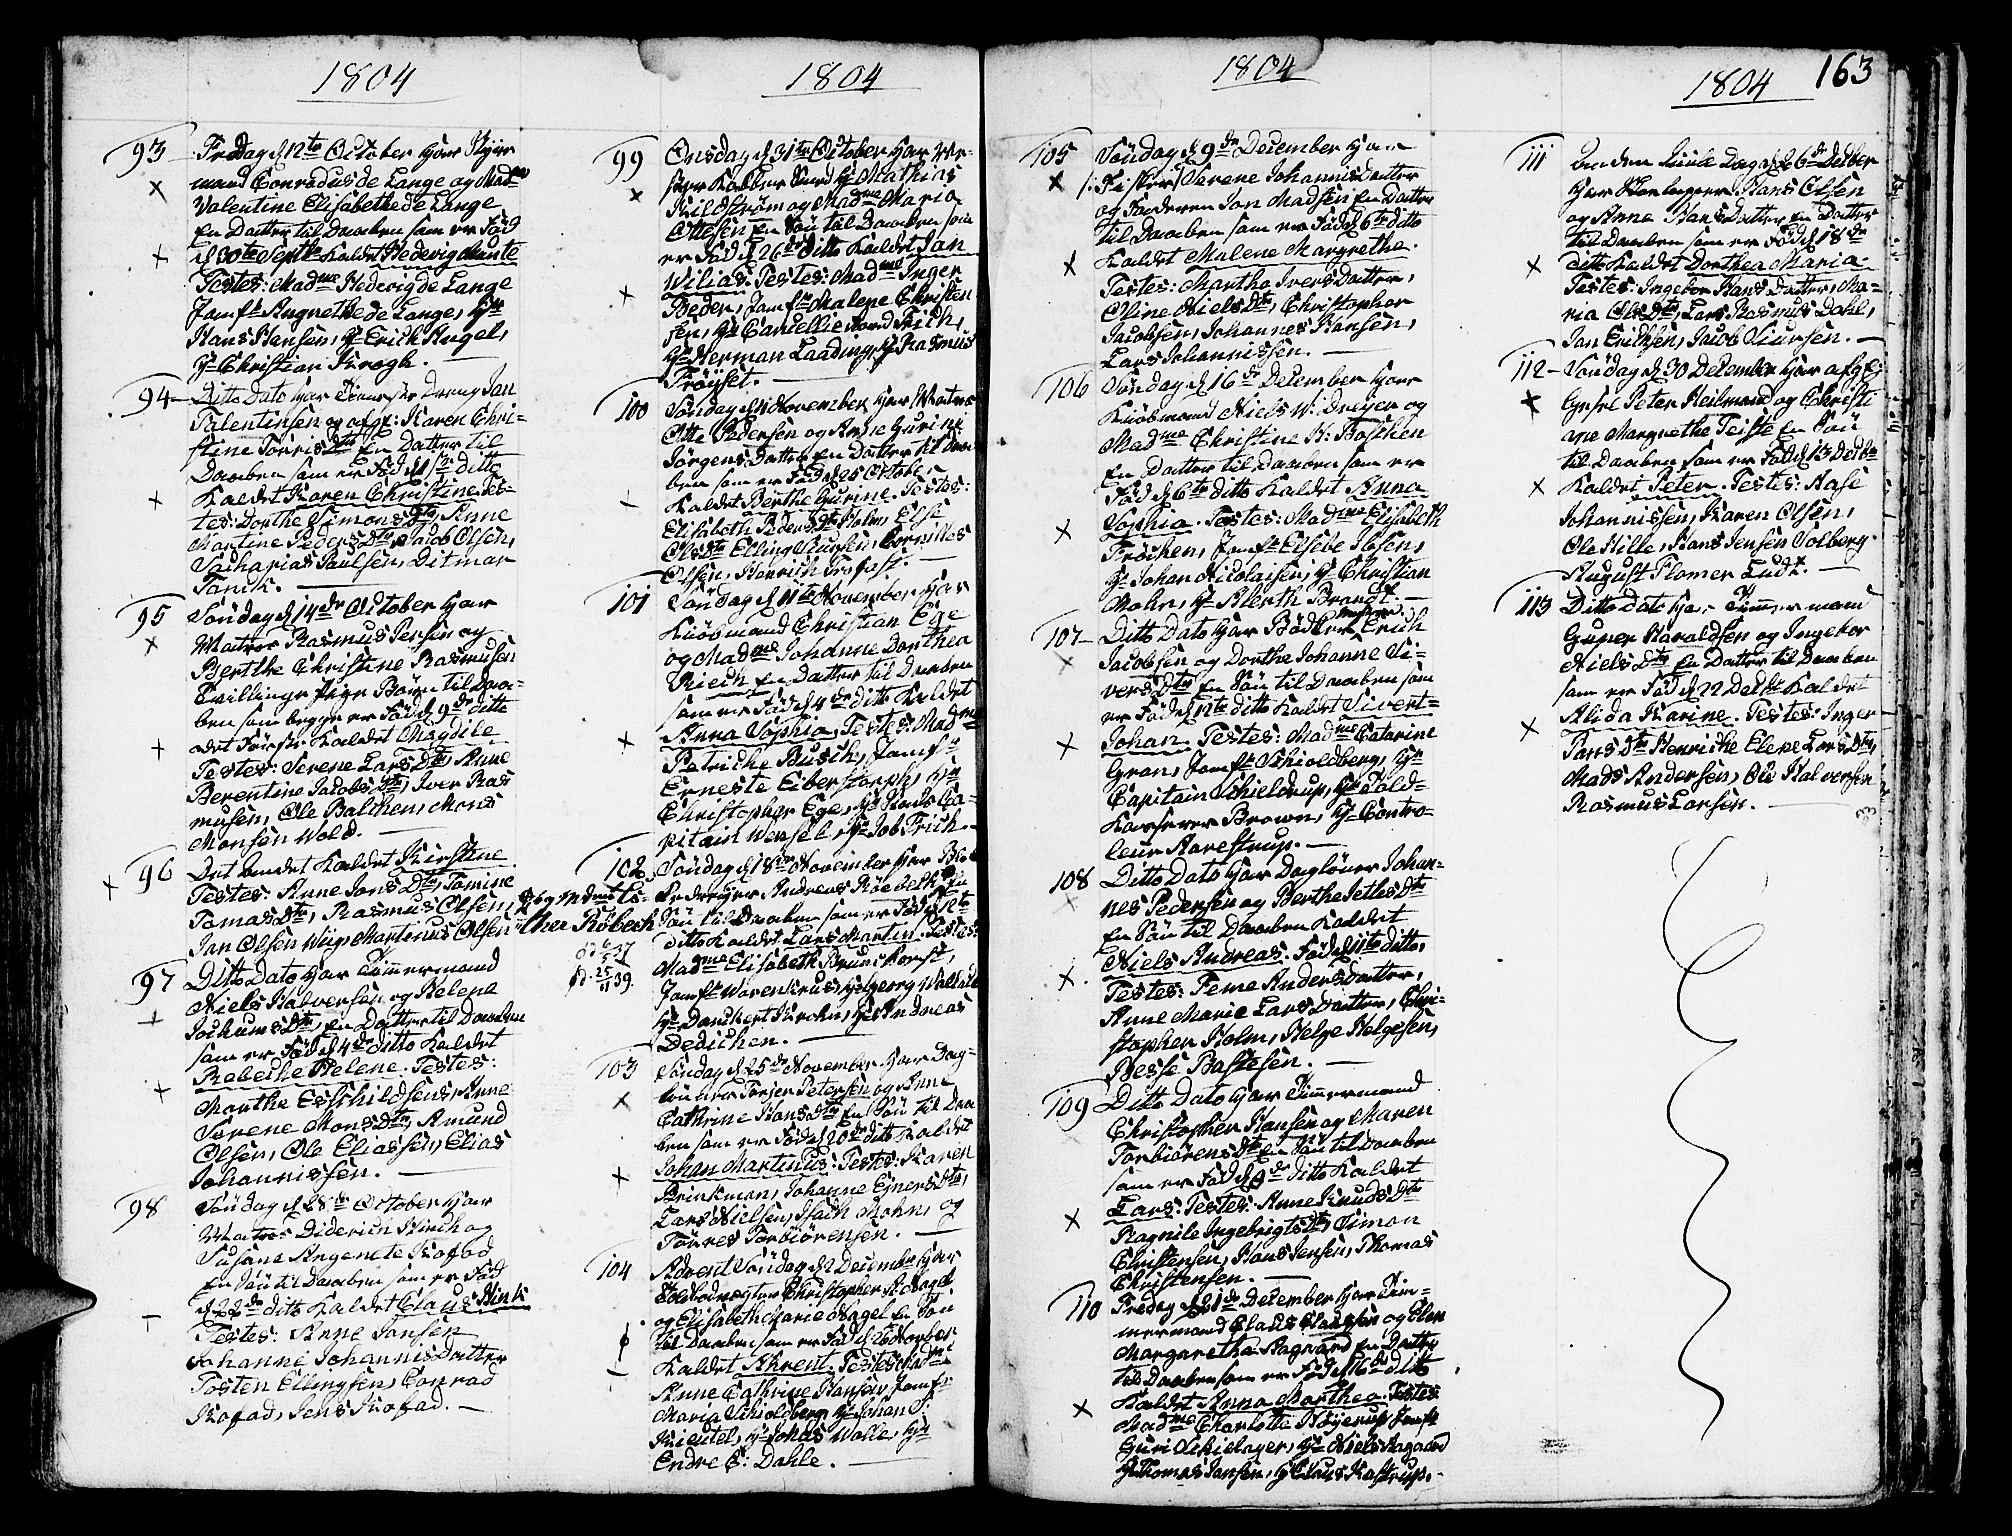 1804
93
Fredag d 12te October har Styr
mand Conradus de Lange og Madme
Valentine Elisabeth de Lange
En Datter til Daaben som er Fød
d 30te Septbr Kaldet Hedevig Munte
Testes: Madme Hedevig de Lange
Jomfr Angnethe de Lange, Hr
Hans Hansen, Hr Erich Angel,
Hr Christian Krogh.
94
Ditto Dato har Jan
Talentinsen og Karen Chri-
stine Torris Dtr En Datter til
Daaben som er Fød d 1ste ditto
Kaldet Karen Christine. Tes-
tes: Dorthe Simons Dtr, Anne
Martine Peders Dtr, Jacob Olsen,
Zacharias Paulsen, Ditmar
Tanck.
95
Søndag d 14de October har
Matros Rasmus Jersin og
Berthe Christine Rasmusen
Tvillinge Børn til Daa-
ben som begge er Fød d 9de ditto
det Første Kaldet Magdile
Testes: Serene Lars Dtr, Anne
Berentine Jacobs Dtr, Iver Ras
musen, Ole Balchen, Mons
Monsen Wold.
96
Det andet Kaldet Kirstine
Testes: Anne Jans Dtr, Tomine
Tomas Dtr, Rasmus Olsen,
Jan Olsen Wiig, Martinus Olsen
97
Ditto Dato har Timmermand
Niels Halversen og Helene
Jochums Dtr, en Datter til Daaben
som er Fød d 4de ditto Kaldet
Rebecke Helene. Testes:
Marthe Eschildsen, Anne
Serene Mons Dtr, Amund
Olsen, Ole Eliassen, Elias
Johannissen.
98
Søndag d 28de October har
Matros Diderich Hinck og
Susane Angenete Kofod
En Søn til Daaben som er Fød
d 22de ditto Kaldet Claus Hink
Testes: Anne Jansen
Johanne Johannis Datter
Tosten Ellingsen, Conrad
Kofod, Jens Kofod.
1804
99
Onsdag d 31te October har
Mathias
Kildstrøm og Madme Maria
Ottesen En Søn til Daaben som
er Fød d 26de ditto Kaldet Jan
Wilias. Testes: Madme Inger
Beder, Jomfr Malene Christen
sen, Hr Cancellieraad Frich,
Hr Herman Laading, Hr Rasmus
Frøyset.
100
Søndag d 4 November har Matros
Otte Pedersen og Anne Gurine
Jørgens Datter En Datter til Daa
ben som er Fød d 25 October
Kaldet Berthe Gurine. Testes:
Elisabeth Peders Dtr Holm, Else
Ols Dtr, Elling Knudsen, Cornilles
Olsen, Henrich Trofast.
101
Søndag d 11te November har
Kiøbmand Christian Ege
og Madme Johanne Dorthea
Riech En Datter til Daaben
som er Fød d 4de ditto Kaldet
Anna Sophia, Testes: Madme
Petriche Busch, Jomfr
Erneste Eiberstorph, Hr
Christopher Ege, Hr Ca-
pitain Wensel, Hr Job Frich
102
Søndag d 18de November har
Andreas Røebech En
Søn til Daaben som er Fød d 12te
ditto Kaldet Lars Martin. Testes:
Madme Elisabeth Brunckorst,
Jomfr Waren Krus, Hr Georg Wallace
Hr Danckert Krohn, Hr Andreas
Dedichen.
103
Søndag d 25de November har Dag-
lønner Torjer Petersen og Anne
Cathrine Hans Dtr En Søn til Daa
ben som er Fød d 20de ditto Kaldet
Johan Martinus: Testes: Karen
Brinkman, Johanne Ejners Dtr,
Lars Nielsen, Isach Mohn, og
Tørres Torbiørensen.
104
Advent Søndag d 2 Decembr har
Christopher A: Nagel
og Elisabeth Marie Nagel En Søn
til Daaben som er Fød d 26 Novbr
Kaldet Ahrent. Testes: Madme
Anne Cathrine Hansen, Jomfr
Maria Schioldberg, Hr Johan J:
Krientel, Hr Johas Wolle, Hr
Endre E: Dahle.
1804
105
Søndag d 9de December har
Serene Johannis Datter
og Faderen Jan Madsen En Datter
til Daaben som er Fød d 6te ditto
Kaldet Malene Margrethe.
Testes: Martha Ivers Datter,
Oline Niels Dtr, Christopher
Jacobsen, Johannes Hansen,
Lars Johannissen.
106
Søndag d 16de December har
Kiøbmand Niels W: Dreyer og
Madme Christine H: Boschen
En Datter til Daaben som er
Fød d 6te ditto Kaldet Anna
Sophia. Testes: Madme Elisabeth
Frochen, Jomfr Elsebe Ibsen,
Hr Johan Nicolaisen, Hr Christian
Mohn, Hr Alerth Brandt.
107
Ditto Dato har Bødker Erich
Jacobsen og Dorthe Johanne Si-
vers Dtr En Søn til Daaben som
er Fød d 12te ditto Kaldet Sivert
Johan. Testes: Madme Catarine
Gran, Jomfr Schioldberg, Hr
Capitain Schieldrup, Hr Told-
Kasserer Brown, Hr Contro-
leur Aarestrup.
108
Ditto Dato har Dagløner Johan-
nes Pedersen og Berthe Jetles Dtr
En Søn til Daaben Kaldet
Niels Andreas. Fød d 11te ditto,
Testes: Feme Anders Datter,
Anne Marie Lars Datter, Chri-
stopher Holm, Helge Helgesen,
Besse Bastesen.
109
Ditto Dato har Timmermand
Christopher Hansen og Maren
Torbiørens Dtr En Søn til Daaben
som er Fød d 9de ditto Kaldet
Lars. Testes: Anne Knuds Dtr
Ragnile Ingebrigts Dtr, Simon
Christensen, Hans Jensen, Thomas
Christensen.
110
Fredag d 21de December har Tim-
mermand Claus Clausen og Elen
Margaretha Aagaard En Datter
til Daaben som er Fød d 16de ditto
Kaldet Anna Marthea. Testes
Madme Charlotte Høyerup, Jomfr
Guri Schielager, Hr Niels Aagaard
Hr Thomas Jansen, Hr Claus Kastrup.
163
1804
111
Anden Juule Dag d 26de Decbr
har Hans Olsen
og Anna Hans Datter En Datter
til Daaben som er Fød d 18de
ditto Kaldet Dorthea Maria
Testes: Ingebor Hans Datter, Ma-
ria Ols Dtr, Lars Rasmus Dahl,
Jan Erichsen, Jacob Siursen.
112
Søndag d 30 December har
Peter Heilmand og Christi
ane Margrethe Teiste En Søn
til Daaben som er Fød d 13 Decbr
Kaldet Peter. Testes: Aase
Johannissen, Karen Olsen,
Ole Hille, Hans Jensen Solberg
August Flomer Ludt.
113
Ditto Dato har Timmermand
Guner Haraldsen og Ingebor
Niels Dtr En Datter til Daaben
som er Fød d 22 Decbr Kaldet
Alida Karine. Testes: Inger
Lars Dtr, Henriche Elene Lars Dtr,
Mads Andersen, Ole Halversen
Rasmus Larsen.